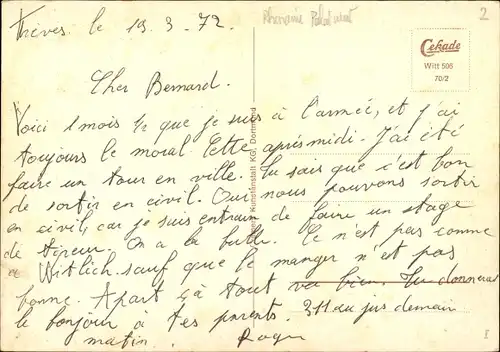 Trèves. le 19.3.72.
Rhénanie Palatinat
2
Cekade
Witt 506
70/2
Cher Bernard.
Voici 1 mois ½ que je suis à l'armée, et j'ai
toujours le moral. Cette après midi. J'ai été
faire un tour en ville. Tu sais que c'est bon
de sortir en civil. Oui nous pouvons sortir
en civil, car je suis entrain de faire un stage
de tireur. On a la bulle. Ce n'est pas comme
à Witlich. sauf que le manger n'est pas
bonne. Apart çà tout va bien. Tu donneras
le bonjour à tes parents. 311 au jus demain
matin. Roger
Kunstanstalt KG, Dortmund